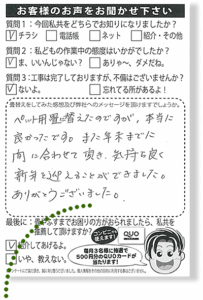 お客様のお声をお聞かせ下さい
質問1:今回私共をどちらでお知りになりましたか?
チラシ 電話帳 ネット 紹介・その他
質問2:私どもの作業中の態度はいかがでしたか?
ま、いいんじゃない? ありゃ～、ダメだね。
質問3:工事は完了しておりますが、不備はございませんか?
ないよ。 ある(
畳替えをしてみた感想及び弊社へのメッセージを頂けますでしょうか。
ペット用畳に替えたのですが、本当に
良かったです。また年末までに
間に合わせて頂き、気持ち良く
新年を迎えることができました。
ありがとうございました。
最後に:
すまでお困りの方がおられましたら、私共を
推薦して頂けますか?
紹介してあげるよ。
いや、教えない。
QUO
毎月3名様に抽選で
500円分のQUOカードが
当たります!